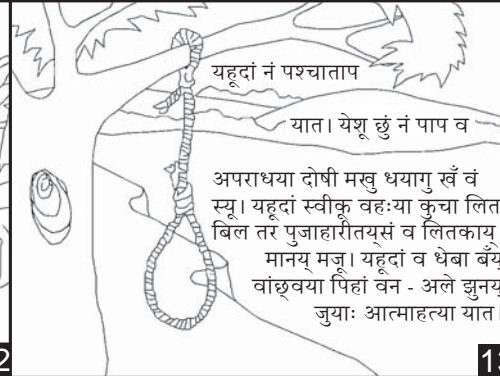 यहूदां नं पश्चाताप
यात। येशू छुं नं पाप व
अपराधया दोषी मखु धयागु खँ वं
स्यू। यहूदां स्वीकू वहःया कुचा लित
बिल तर पुजाहारीतय्‌सं व लितकाय्
मानय् मजू। यहूदां व धेबा बँय्
वांछ्वया पिहां वन - अले झुनय्
जुयाः आत्माहत्या यात।
2